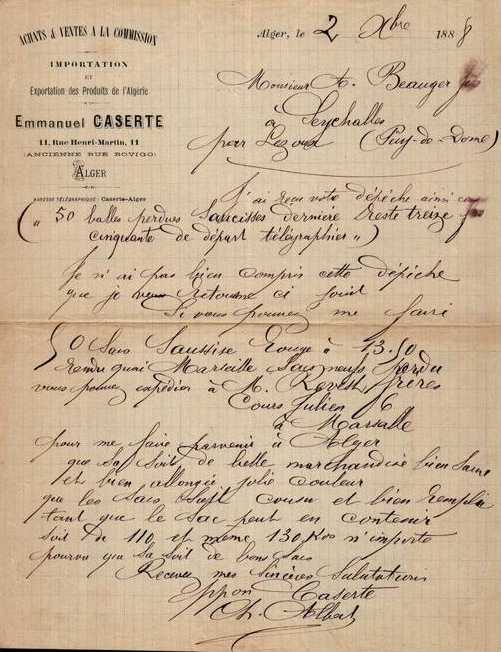 ACHATS & VENTES A LA COMMISSION
IMPORTATION
ET
Exportation des Produits de l'Algérie
Emmanuel CASERTE
11, Rue Henri-Martin, 11
(ANCIENNE RUE ROVIGO)
ALGER
ADRESSE TÉLÉGRAPHIQUE : Caserte-Alger
Alger, le 2 Xbre 1888
Monsieur A. Beauger
à Seychalles
par Lezoux (Puy-de-Dome)
J'ai reçu votre dépêche ainsi
(" 50 balles perdues Saucisses dernière reste treize
cinquante de départ télégraphier ")
Je n'ai pas bien compris cette dépêche
que je vous retourne ci joint
Si vous pouvez me faire
50 Sacs Saussise Rouge à 13.50
rendu quai Marseille Sacs neufs perdu
vous pouvez expédier à M. frères
Cours Julien 86
à Marsalle
pour me faire parvenir à Alger
que sa soit de belle marchandise bien Saine
et bien allongée jolie couleur
que les Sacs soit cousu et bien remplis
tant que le sac peut en contenir
soit de 110 et meme 130 Kos n'importe
pourvu que sa soit de bons sacs
Recevez mes sincères Salutations
Caserte
Ch. Albert